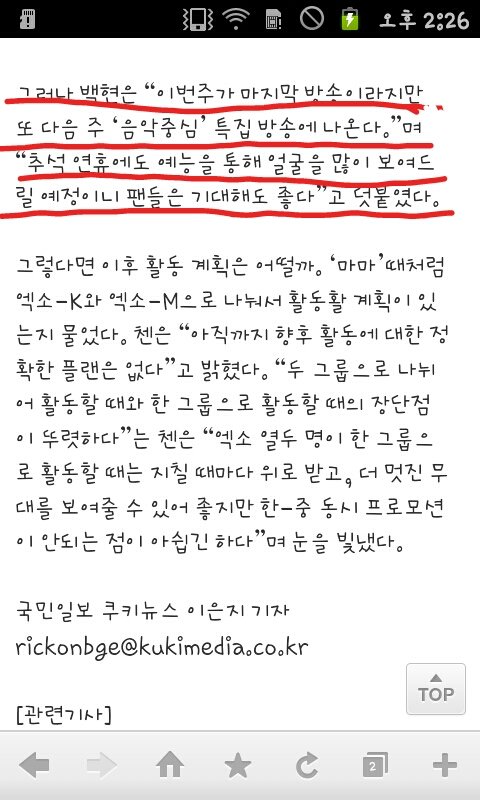 오후 2:26
그러나 백현은 “이번주가 마지막 방송이라지만
또 다음 주 ‘음악중심’ 특집 방송에 나온다.”며
“추석 연휴에도 예능을 통해 얼굴을 많이 보여드
릴 예정이니 팬들은 기대해도 좋다”고 덧붙였다.
그렇다면 이후 활동 계획은 어떨까. ‘마마’때처럼
엑소-K와 엑소-M으로 나눠서 활동활 계획이 있
는지 물었다. 첸은 “아직까지 향후 활동에 대한 정
확한 플랜은 없다”고 밝혔다. “두 그룹으로 나뉘
어 활동할 때와 한 그룹으로 활동할 때의 장단점
이 뚜렷하다”는 첸은 “엑소 열두 명이 한 그룹으
로 활동할 때는 지칠 때마다 위로 받고, 더 멋진 무
대를 보여줄 수 있어 좋지만 한-중 동시 프로모션
이 안되는 점이 아쉽긴 하다”며 눈을 빛냈다.
국민일보 쿠키뉴스 이은지 기자
rickonbge@kukimedia.co.kr
TOP
[관련기사]
2